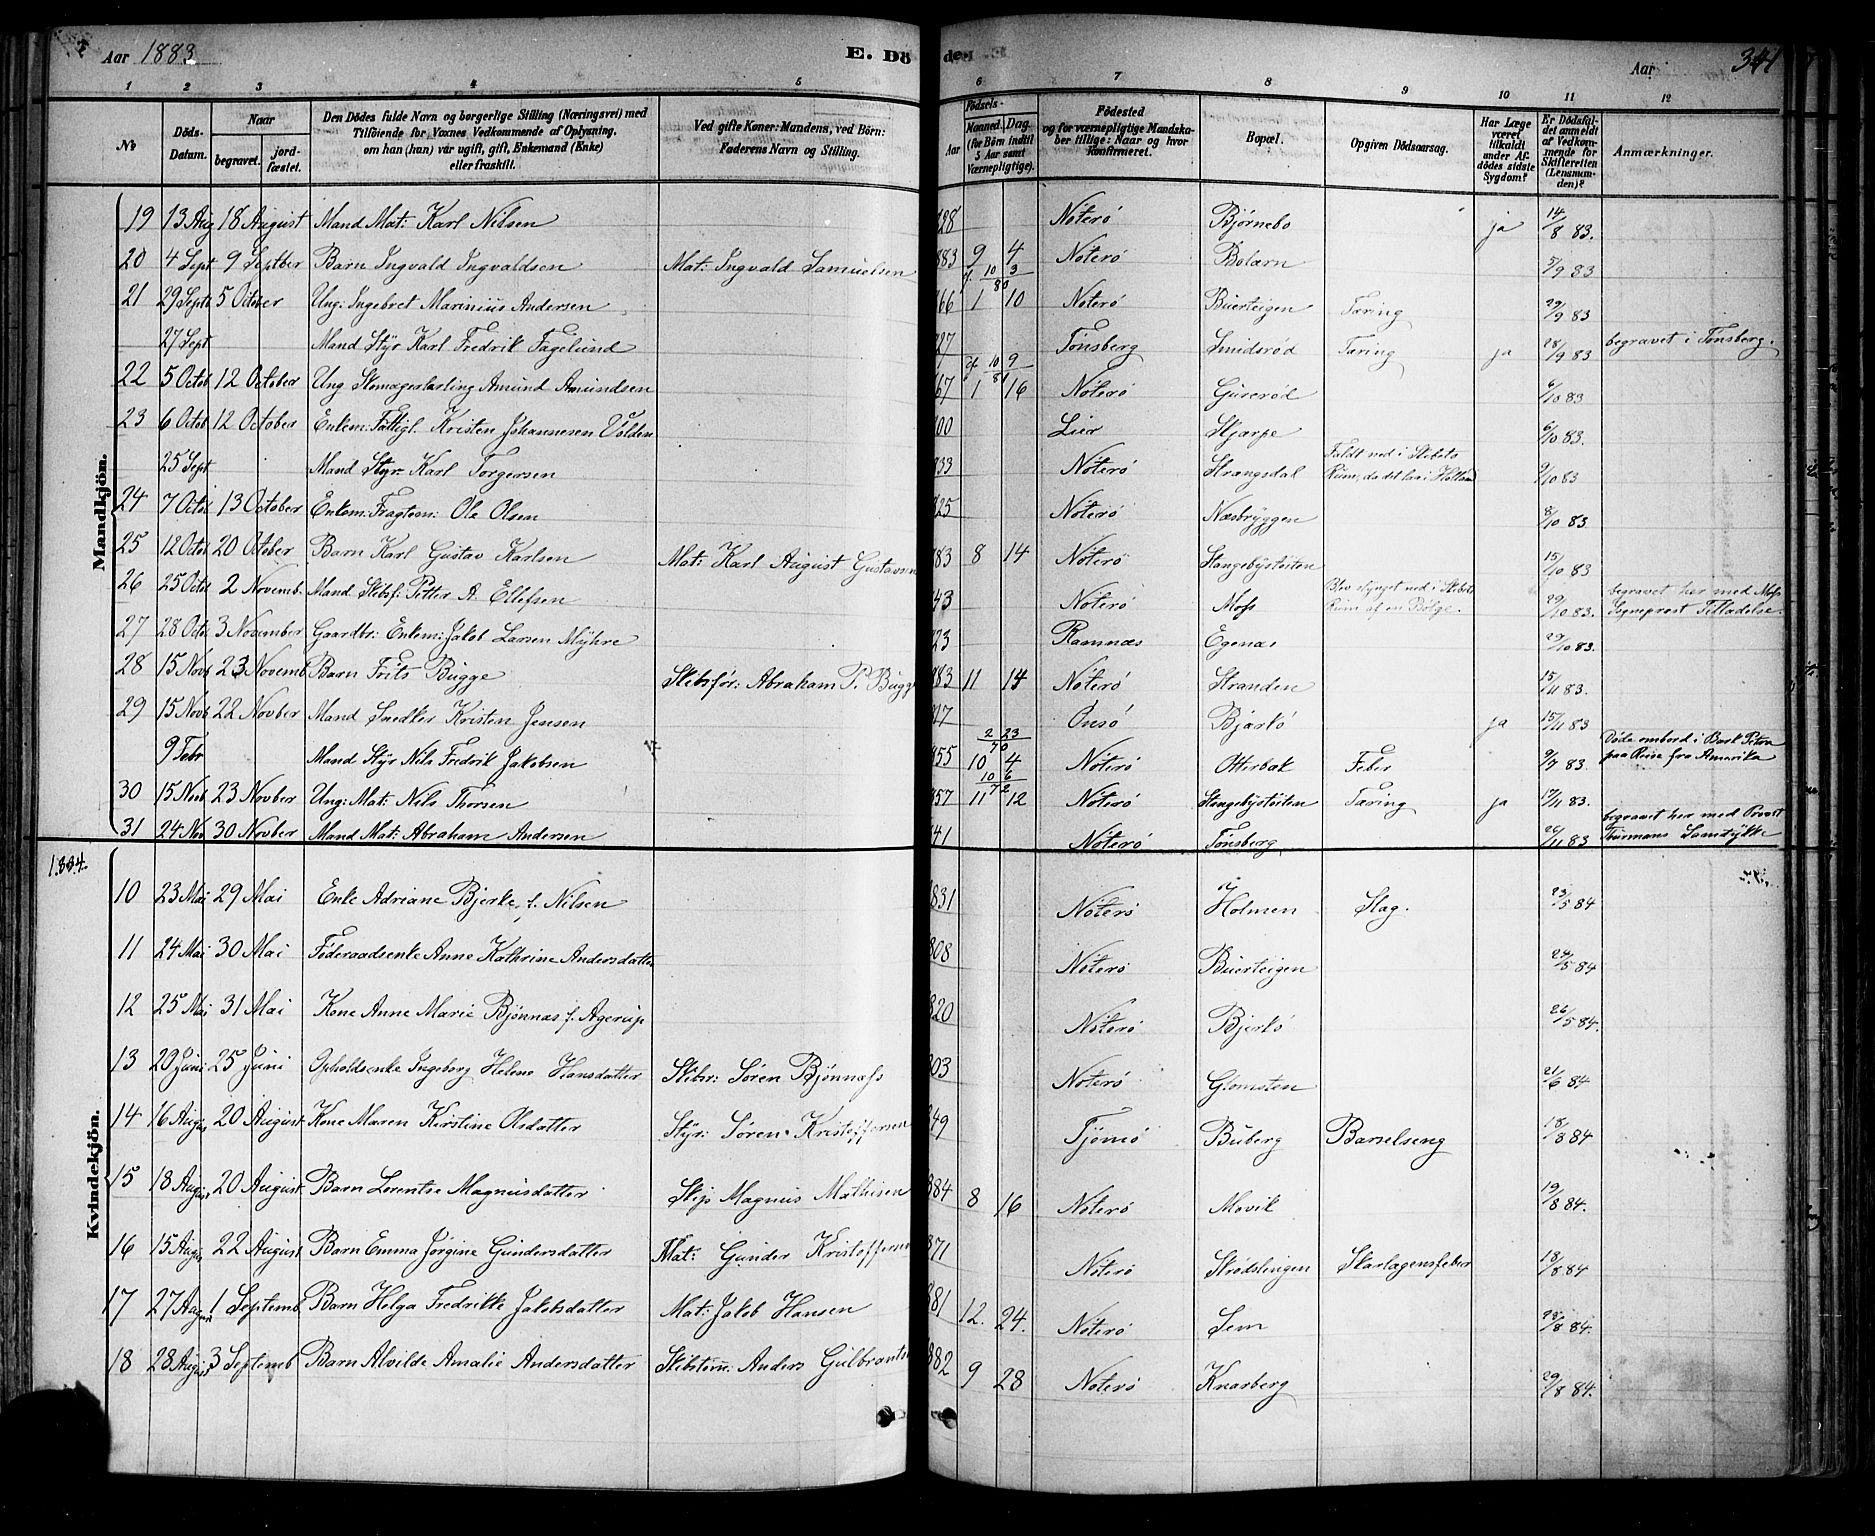 Aar 1883 E. Dö de. Aar 341
1 2 3 4 5 6 7 8 9 10 11 12
No Döds-Datum. Naar begravet. jord-fæstet. Den Dödes fulde Navn og borgerlige Stilling (Næringsvei) med Tilföiende for Voxnes Vedkommende af Oplysning. om han (hun) var ugift, gift, Enkemand (Enke) eller fraskilt. Ved gifte Koner: Mandens, ved Börn: Faderens Navn og Stilling. Födsels- Aar Maaned. Dag. (for Börn indtil 5 Aar samt Værnepligtige). Födested og for værnepligtige Mandska-ber tillige: Naar og hvor Konfirmeret. Bopæl. Opgiven Dödsaarsag. Har Læge været tilkaldt under Af-dödes sidste Sygdom? Er Dödsfal-det anmeldt af Vedkom-mende for Skifteretten (Lensman-den)? Anmærkninger.
Mandkjön.
19 13 Aug 18 August Mand Mat: Karl Nilsen 828 Nöterö Bjørnebo ja 14/8 83.
20 4 Sept 9 Septber Barn Ingvald Ingvaldsen Mat: Ingvald Samuelsen 883 9 4 Nöterö Bolærn 5/9 83
21 29 Septb 5 Octber Ung: Ingebret Marinius Andersen f. 10/80 3 866 1 10 Nöterö Buerteigen Tæring 29/9 83
27 Sept Mand Styr Karl Fredrik Fagelund 827 Tønsberg Smidsrød Tæring ja 28/9 83 begravet i Tønsberg.
22 5 Octob 12 October Ung Skomagerlærling Amund Amundsen cf 10/81 9 867 1 16 Nöterö Guserød 6/10 83
23 6 Octob 12 October Enkem: Fattigl. Kristen Johannesen Volden 800 Lier Skjærpe 6/10 83.
25 Sept Mand Styr Karl Torgersen 833 Nöterö Strengsdal Faldt ned i Skibets Rum, da det laa i Holland 9/10 83
24 7 Octob 13 October Enkem: Fragtem: Ole Olsen 825 Nöterö Næsbryggen 8/10 83
25 12 Octob 20 October Barn Karl Gustav Karlsen Mat: Karl August Gustavsen 883 8 14 Nöterö Stangebystøiten 15/10 83
26 25 Octob 2 Novemb. Mand Skibsf: Petter A. Ellefsen 843 Nöterö Moss Blev slynget ned i Skibets Rum af en Bølge. 29/10 83. begravet her med Moss Sogneprest Tilladelse.
27 28 Octo 3 November Gaardbr: Enkem: Jakob Larsen Myhre 823 Ramnæs Egenæs 29/10 83.
28 15 Novb 23 Novemb Barn Frits Bugge Skibsfør: Abraham P. Bugge 883 11 14 Nöterö Stranden 15/11 83.
29 15 Novb 22 Novber Mand Snedker Kristen Jensen 827 Onsö Bjærkö ja 15/11 83
9 Febr Mand Styr Nils Fredrik Jakobsen 2/70 23 855 10 4 Nöterö Otterbæk Feber 9/7 83. Døde ombord i Bark Petra paa Reise fra Amerika
30 15 Novb 23 Novber Ung: Mat: Nils Thorsen 10/72 6 857 11 12 Nöterö Stangebystøiten Tæring ja 17/11 83.
31 24 Nov 30 Novber Mand Mat: Abraham Andersen 841 Nöterö Tønsberg 26/11 83 begravet her med Provst Thurmans Samtykke
1884.
Kvindekjön.
10 23 Mai 29 Mai Enke Adriane Bjerke f. Nilsen 831 Nöterö Holmen Slag. 23/5 84
11 24 Mai 30 Mai Føderaadsenke Anne Kathrine Andersdatter 808 Nöterö Buerteigen 24/5 84
12 25 Mai 31 Mai Kone Anne Marie Bjönnæs f. Agerup 820 Nöterö Bjerkö 26/5 84.
13 20 Juni 25 Juni Opholdsenke Ingeborg Helene Hansdatter Skibsr: Søren Bjönnæss 803 Nöterö Glomsten 21/6 84
14 16 Aug 20 August Kone Maren Kirstine Olsdatter Styr: Søren Kristoffersen 849 Tjömö Buberg Barselseng 18/8 84
15 18 Aug 20 August Barn Lerentse Magnusdatter Skip Magnus Mathisen 884 8 16 Nöterö Movik 19/8 84.
16 15 Aug 22 August Barn Emma Jørgine Gundersdatter Mat: Gunder Kristofferse 871 Nöterö Skrødslingen Skarlagensfeber 18/8 84
17 27 Aug 1 Septemb Barn Helga Fredrikke Jakobsdatter Mat: Jakob Hansen 881 12. 24. Nöterö Sem 28/8 84.
18 28 Aug 3 Septemb Barn Alvilde Amalie Andersdatter Skibstøm: Anders Gulbrants 882 9 28 Nöterö Knarberg 29/8 84.